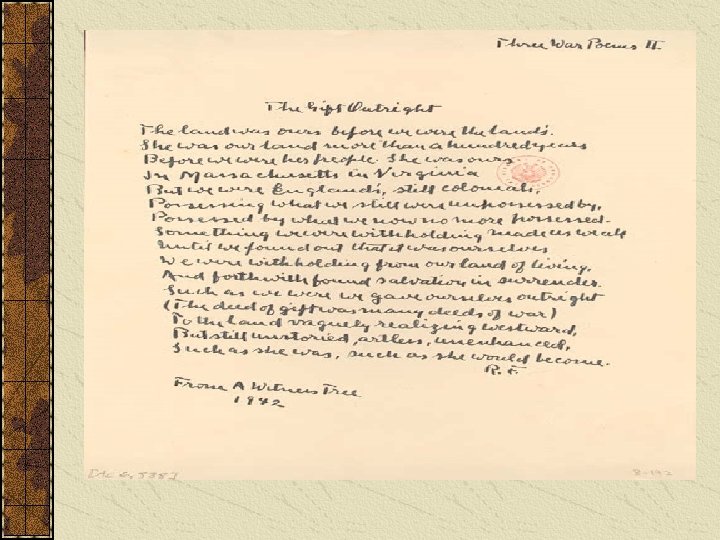 Three War Poems II
The Gift Outright
The land was ours before we were the land's.
She was our land more than a hundred years
Before we were her people. She was ours
In Massachusetts in Virginia
But we were England's, still colonials,
Possessing what we still were unpossessed by,
Possessed by what we now no more possessed.
Something we were withholding made us weak
Until we found out that it was ourselves
We were withholding from our land of living,
And forthwith found salvation in surrender.
Such as we were we gave ourselves outright
(The deed of gift was many deeds of war)
To the land vaguely realizing westward,
But still unstoried, artless, unenhanced,
Such as she was, such as she would become.
R. F.
From A Witness Tree
1942